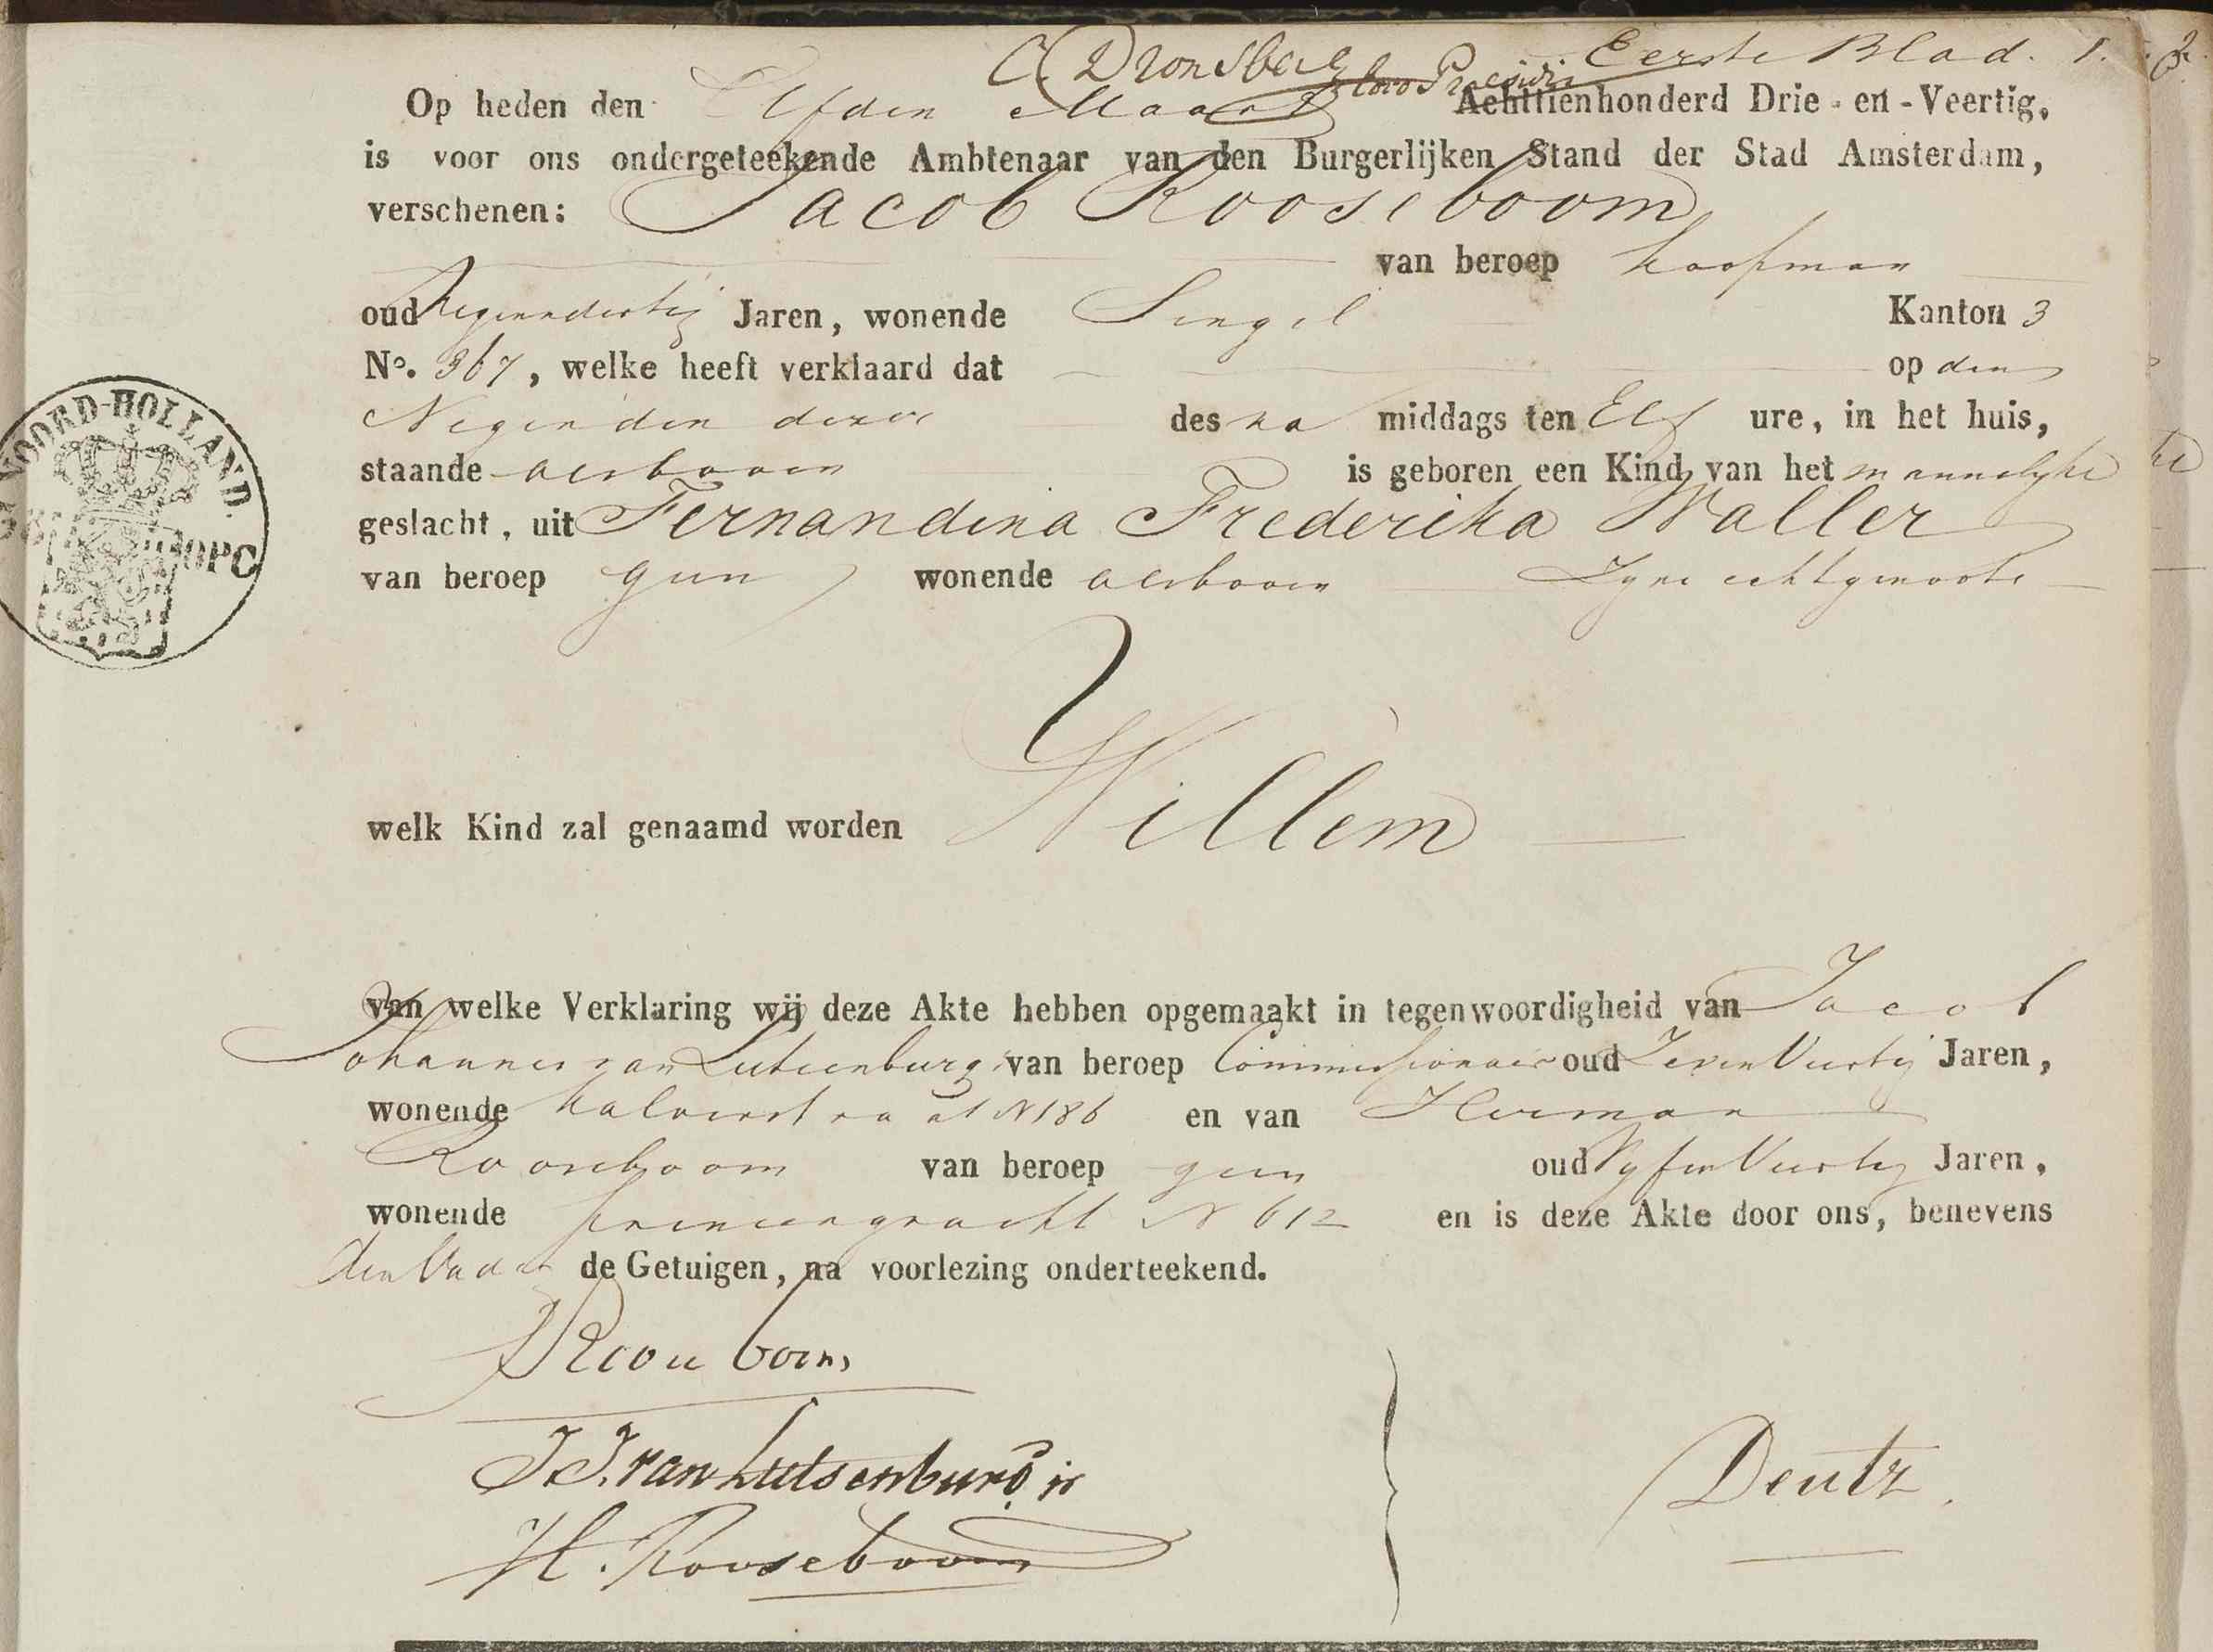 C. Dronsberg loco Praesidis Eerste Blad. 1.
Op heden den Elfden Maart Achttienhonderd Drie-en-Veertig,
is voor ons ondergeteekende Ambtenaar van den Burgerlijken Stand der Stad Amsterdam,
verschenen: Jacob Rooseboom
van beroep koopman
oud Negenendertig Jaren, wonende Singel Kanton 3
No. 367, welke heeft verklaard dat op den
Negenden dezer des na middags ten Elf ure, in het huis,
staande alsboven is geboren een Kind van het mannelyke
geslacht, uit Fernandina Frederika Waller
van beroep geen wonende alsboven Zyne echtgenoote
welk Kind zal genaamd worden Willem
van welke Verklaring wij deze Akte hebben opgemaakt in tegenwoordigheid van Jacob
Johannes van Lutsenburg van beroep Commissionair oud Zeven Veertig Jaren,
wonende kalverstraat N 186 en van Herman
Rooseboom van beroep geen oud Vyf en Veertig Jaren,
wonende prinsengracht N 612 en is deze Akte door ons, benevens
den Vader de Getuigen, na voorlezing onderteekend.
J Rooseboom
J.J. van Lutsenburg jr
H. Rooseboom
Deutz
NOORD-HOLLAND.
OPC